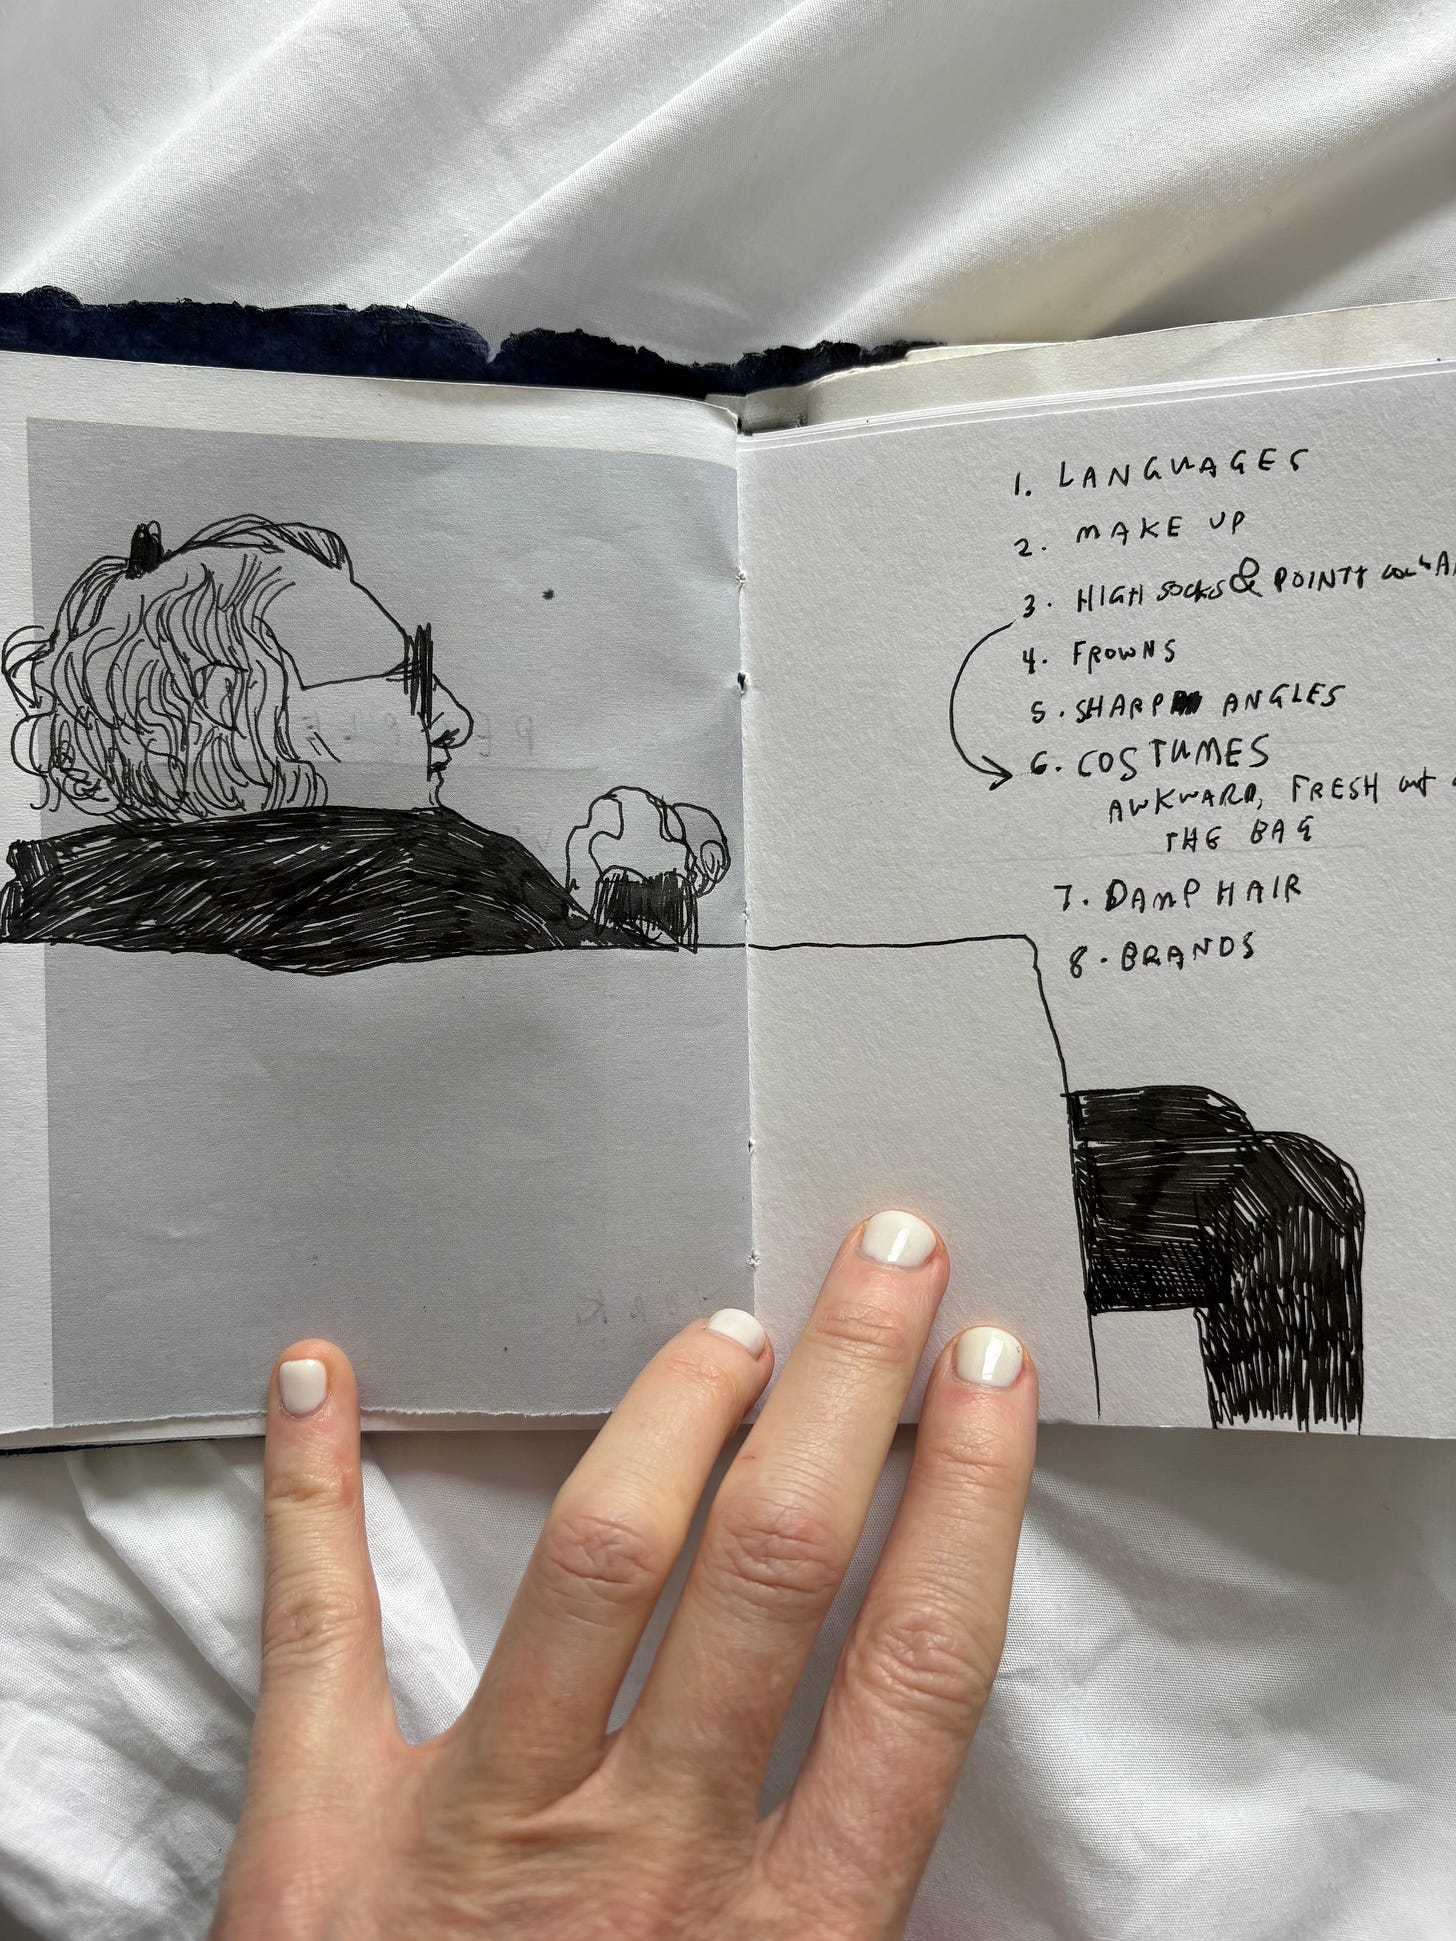 1. LANGUAGES
2. MAKE UP
3. HIGH SOCKS & POINTY
4. FROWNS
5. SHARP ANGLES
6. COSTUMES
AWKWARD, FRESH out
THE BAG
7. DAMP HAIR
8. BRANDS